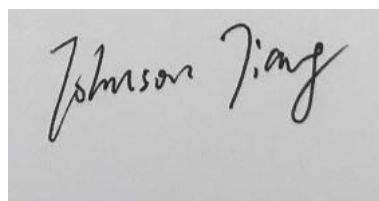 Johnson Jiang